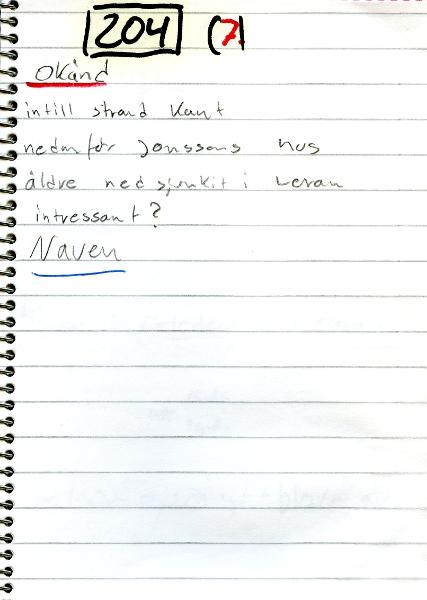 204 (7)
Okänd
intill strand kant
nedanför Jonssons hus
äldre nedsjunkit i leran
intressant?
Naven